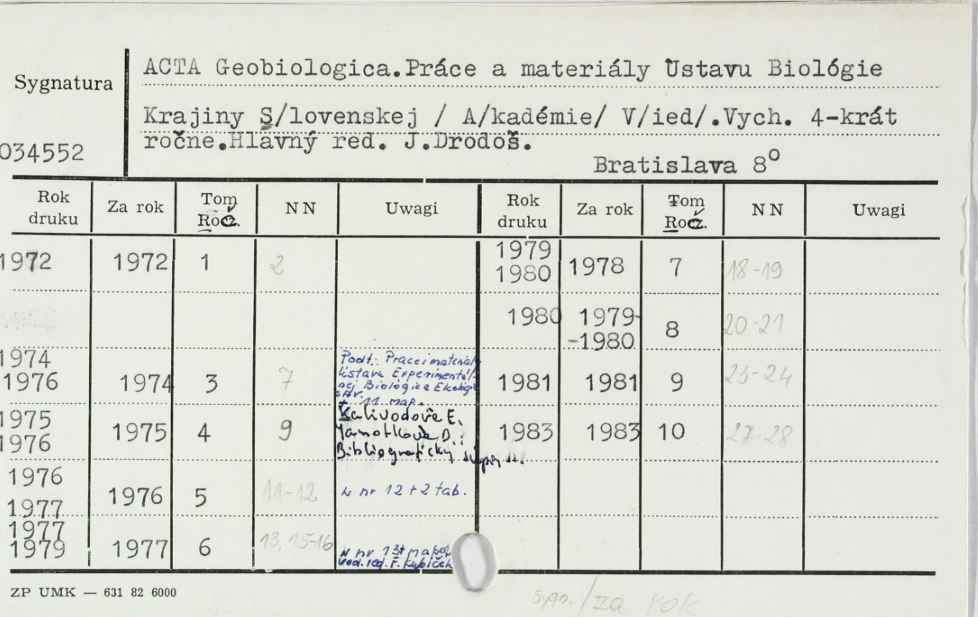 Sygnatura
ACTA Geobiologica.Práce a materiály Ústavu Biológie
Krajiny S/lovenskej / A/kadémie/ V/ied/.Vych. 4-krát
ročne.Hlavný red. J.Drodoš.
034552
Bratislava 8°
Rok druku Za rok Tom Rocz. NN Uwagi Rok druku Za rok Tom Rocz. NN Uwagi
1972 1972 1 2 1979 1980 1978 7 18-19
1980 1979- -1980 8 20-21
1974 1976 1974 3 7
Podt. Prace i material
Ustava Experimentál
nej Biológie a Ekológ
+ 11 map.
1981 1981 9 23-24
1975 1976 1975 4 9
Kalivodová E.
Bibliografický súpis
1983 1983 10 27-28
1976 1977 1976 5 11-12 w nr 12 + 2 tab.
1977 1979 1977 6 13, 15-16
w nr 13 + mapa
ZP UMK — 631 82 6000
za rok